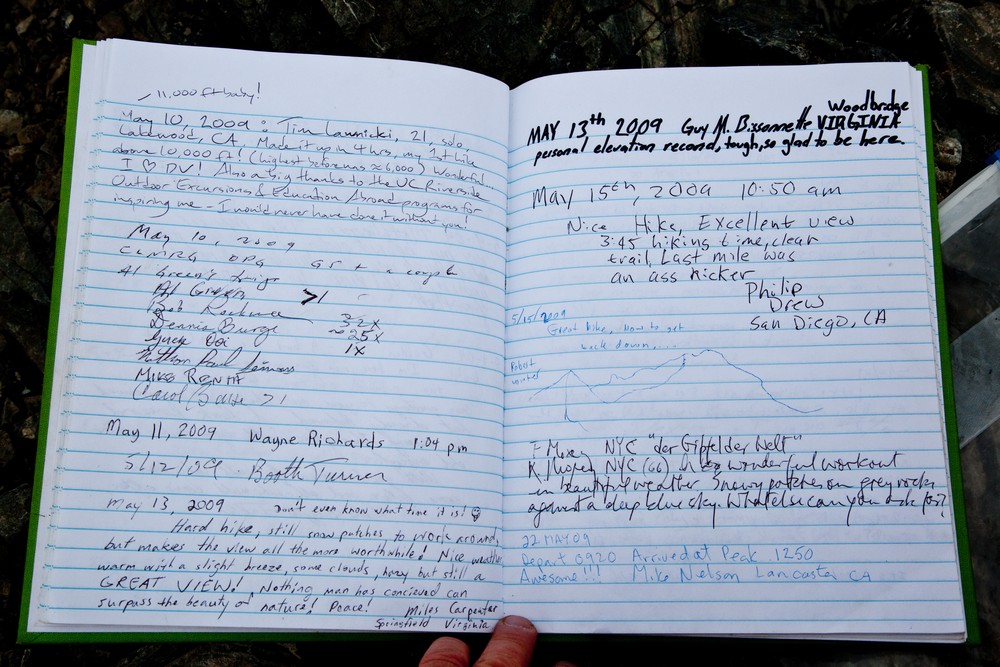 11,000 ft baby!
May 10, 2009: Tim Lawnicki, 21, solo,
Lakewood, CA. Made it up in 4 hrs, my 1st hike
above 10,000 ft! (highest before was ≈ 6,000) Wonderful...
I ♡ DV! Also a big thanks to the UC Riverside
Outdoor Excursions & Education Abroad programs for
inspiring me - I would never have done it without you!
May 10, 2009
CLMRG DPS a couple
Al Green's
Al Green >1
Bob Rockwell 32x
Dennis Burge ≈25x
Ooi 1x
Paul
MIKE
Carol Burge >1
May 11, 2009 Wayne Richards 1:04 p.m
5/12/09 Booth Turner
May 13, 2009 Don't even know what time it is!
Hard hike, still snow patches to work around,
but makes the view all the more worthwhile! Nice weather
warm with a slight breeze, some clouds, hazy but still a
GREAT VIEW! Nothing man has concieved can
surpass the beauty of nature! Peace! Miles Carpenter
Springfield Virginia
Woodbridge
MAY 13th 2009 Guy M. Bissonnette VIRGINIA
personal elevation record, tough, so glad to be here.
May 15th, 2009 10:50 am
Nice Hike, Excellent view
3:45 hiking time, clear
trail, Last mile was
an ass kicker
Philip
Drew
San Diego, CA
5/15/2009
Great hike, have to get
back down....
Robert
NYC "der Gipfel der Welt"
NYC (66) wonderful workout
in beautiful weather. Snowy patches on grey rocks
against a deep blue sky. What else can you ask for?
22 MAY 09
Depart 0920 Arrived at Peak 1250
Awesome!!! Mike Nelson Lancaster CA